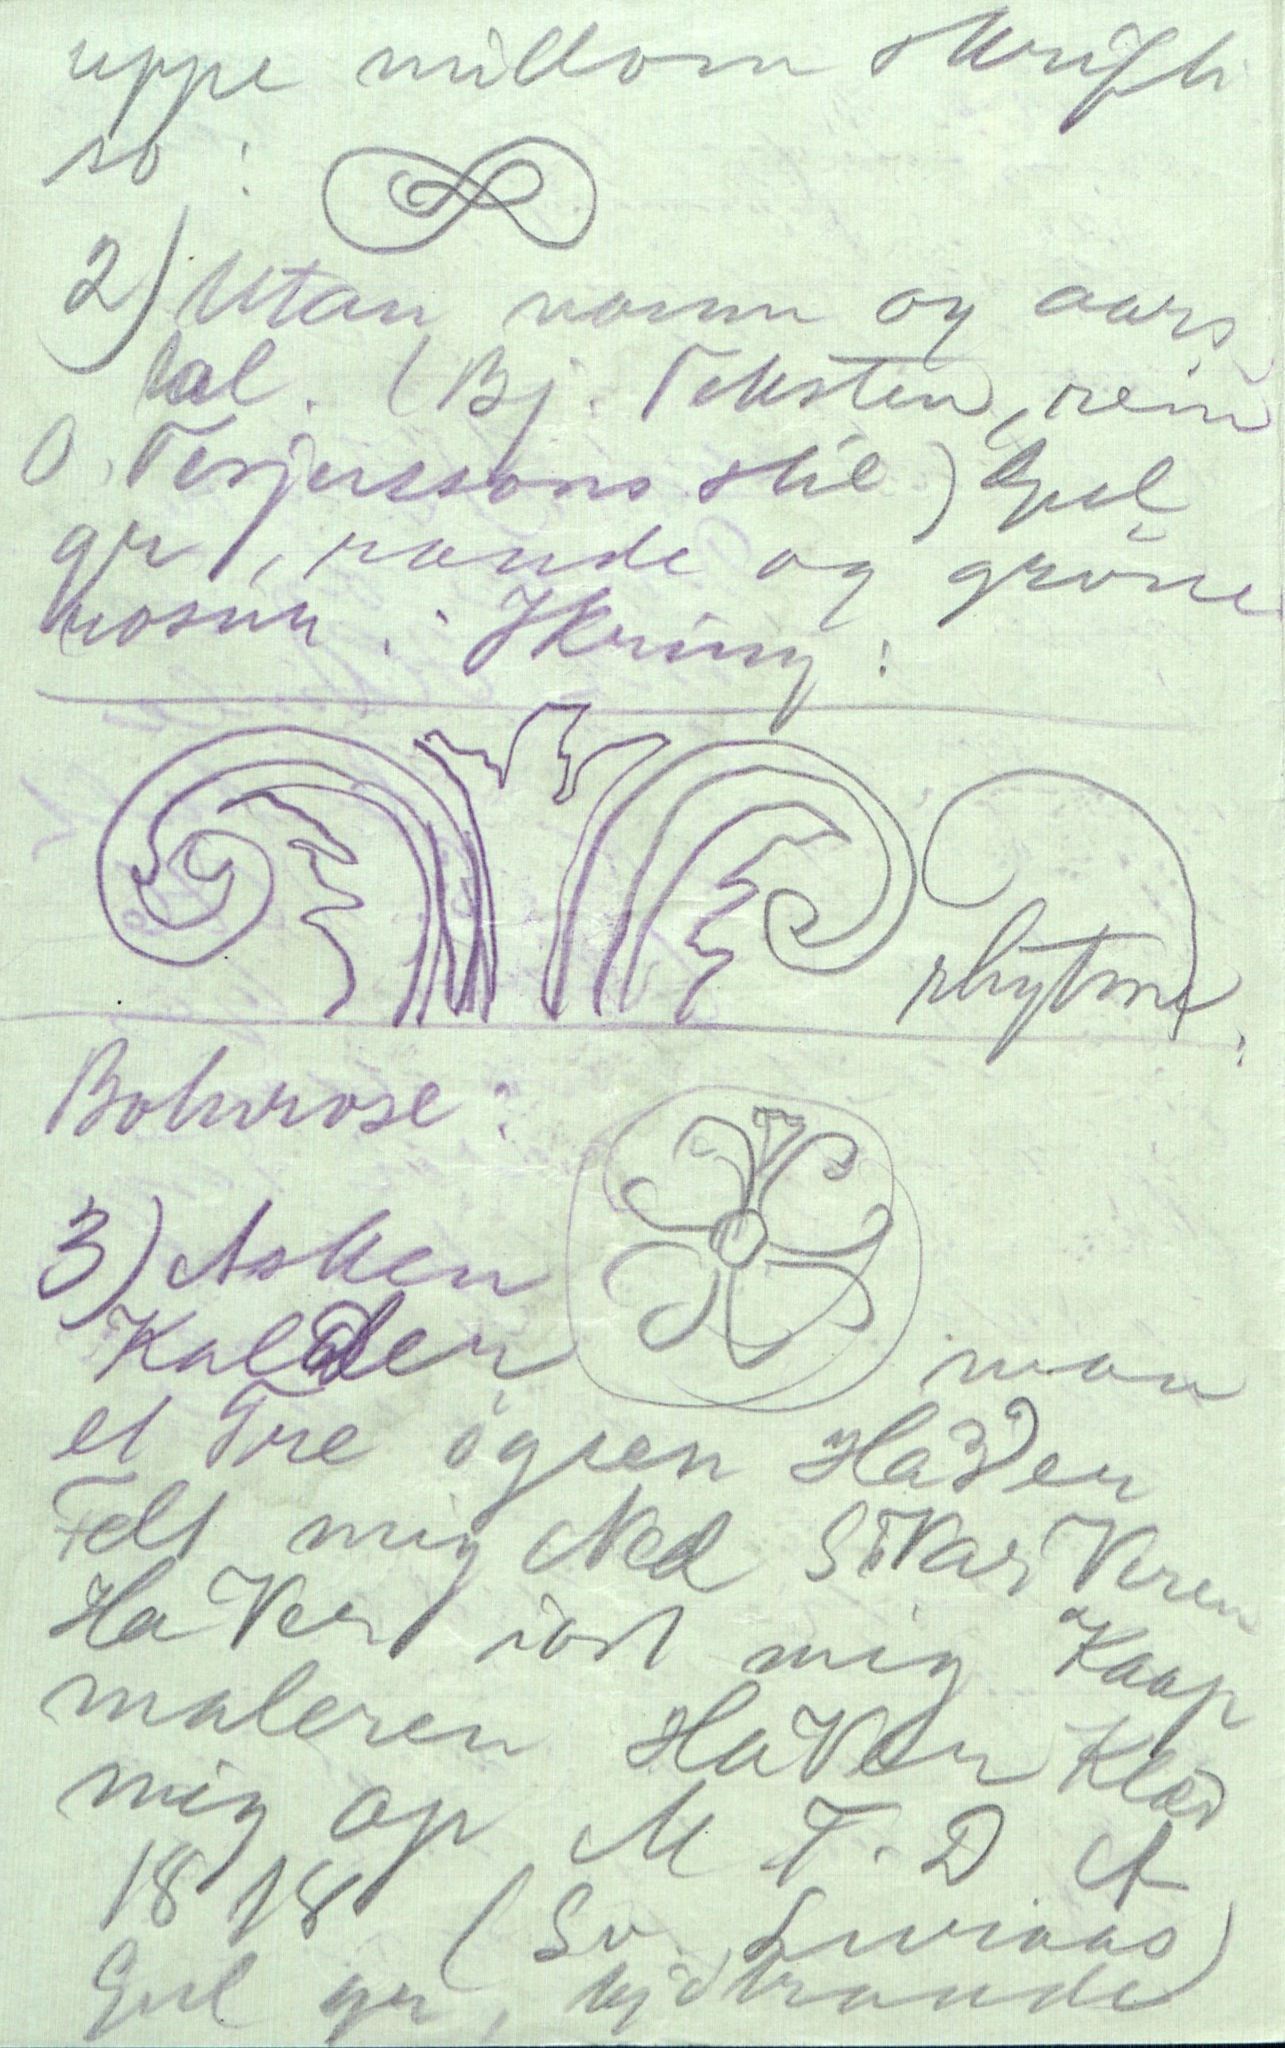 uppe millom skrifti
so :
2) Utan namn og aars
tal. (Bj. Teksten, rein
O. Terjessons stil) Gul
gr, raude og gröne
rosur. Ikring :
rhytme.
Botnrose :
3) Asken
Kalder man
et Tre ögsen Hader
Felt mig Ned SiVar Veren
HaVer iost mig Kaap
maleren HaVer Kläd
mig op M T. D A
1818 (Sv. Luraas)
Gul gr, kjötraude